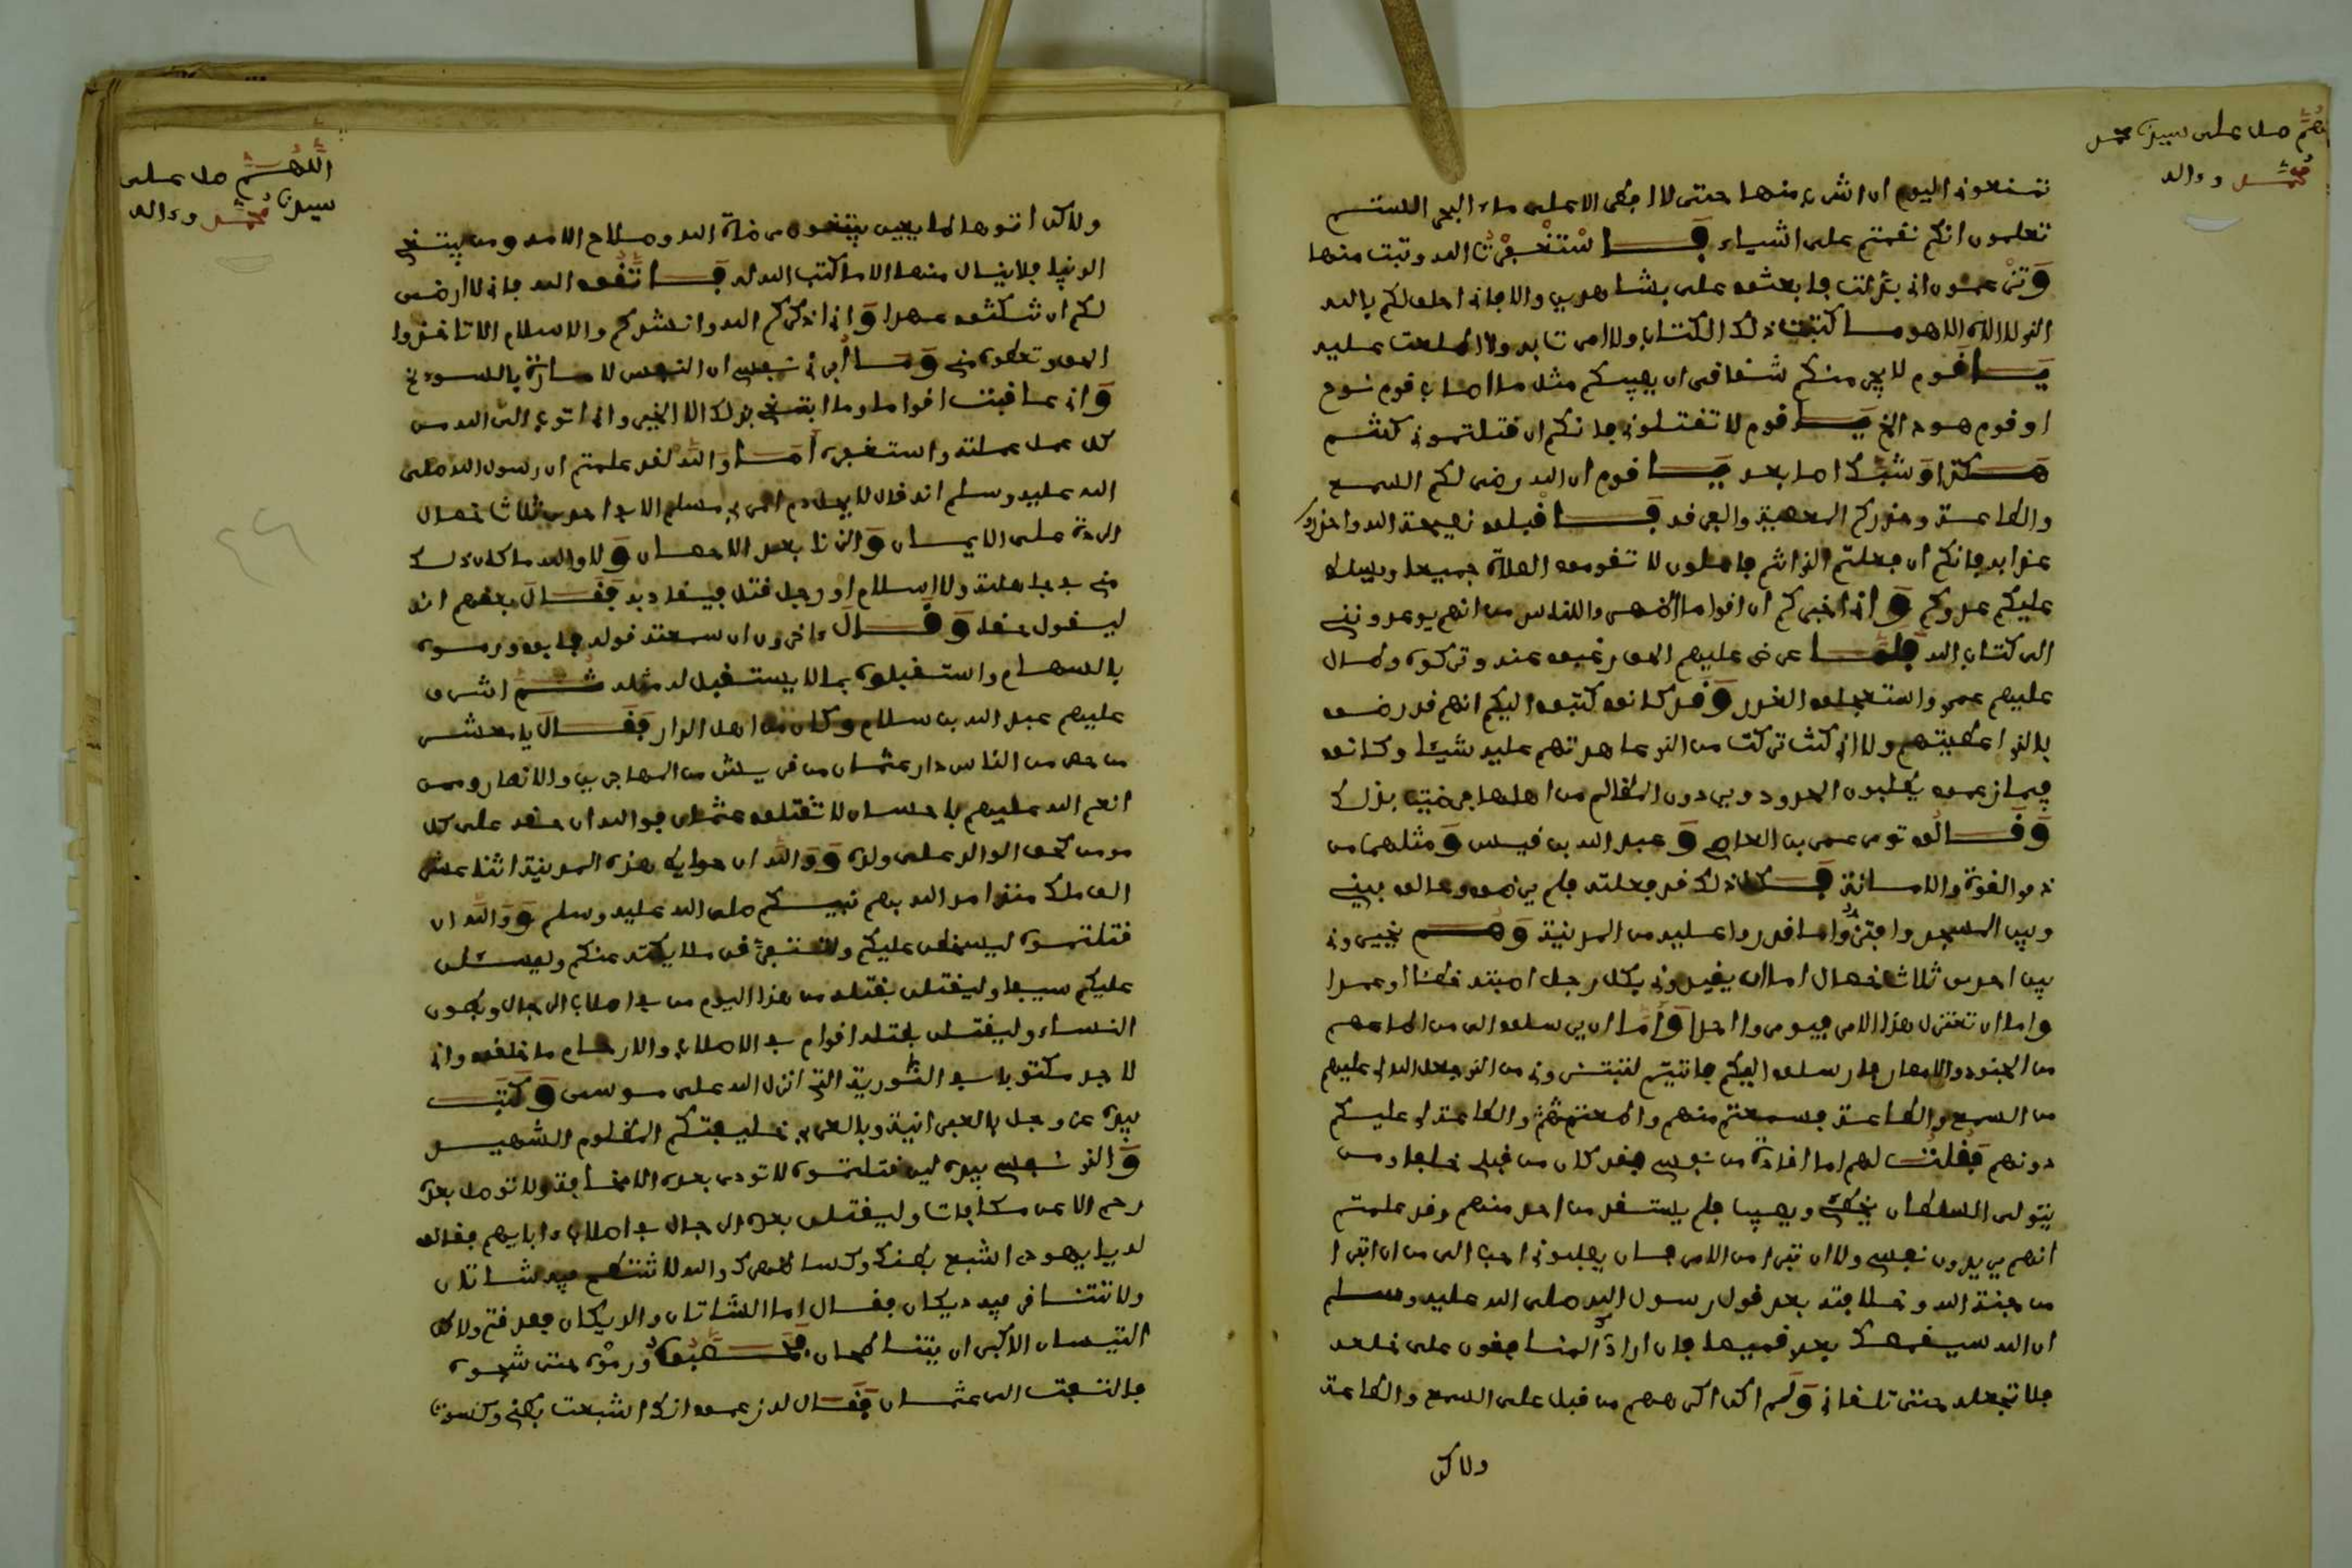 تمنعونى اليوم ان اشرب منها حتى لا افطر الا على ماء البحر الستم
تعلمون انكم نقمتم على اشياء فاستغفرت الله وتبت منها
وتزعمون انى فابعثوا على بشاهدين والا فانى احلف لكم بالله
الذى لا اله الا هو ما كتبت ذلك الكتاب ولا امرت به ولا اطلعت عليه
يا قوم لا يجرمنكم شقاقى ان يصيبكم مثل ما اصاب قوم نوح
او قوم هود الخ يا قوم لا تقتلونى فانكم ان قتلتمونى كنتم
هكذا وشبك اما بعد يا قوم ان الله رضى لكم السمع
والطاعة وحذركم المعصية والفرقة فاقبلوا نصيحة الله واحذروا
عذابه فانكم ان فعلتم الذى انتم فاعلون لا تقوموا الصلاة جميعا ويسلط
عليكم عدوكم وانى اخبركم ان اقواما اظهروا للناس انهم يدعوننى
الى كتاب الله فلما عرض عليهم الحق رغبوا عنه وتركوه وطال
عليهم عمرى واستعجلوا القدر وقد كانوا كتبوا اليكم انهم قد رضوا
بالذى اعطيتهم ولا انى كنت تركت من الذى عاهدتهم عليه شيئا وكانوا
فيما زعموا يطلبون الحدود ويردون المظالم من اهلها فرضيت بذلك
وقالوا تومر عمرو بن العاص وعبد الله بن قيس ومثلهما من
ذوى القوة والامانة فكل ذلك قد فعلته فلم يرضوا وحالوا بينى
وبين المسجد وابتزوا ما قدروا عليه من المدينة وهم يخيرونى
بين احدى ثلاث خصال اما ان يقيدونى بكل رجل اصبته خطئا او عمدا
واما ان تعتزل هذا الامر فيومر احدا واما ان يرسلوا الى من اطاعهم
من الجنود والامصار فارسلوا اليكم فاتيتم لتبتزونى من الذى جعل الله لى عليهم
من السمع والطاعة فسمعتم منهم واطعتموهم والطاعة لى عليكم
دونهم فقلت لهم اما اقادة من نفسى فقد كان من قبلى خلفاء ومن
يتولى السلطان يخطئ ويصيب فلم يستقد من احد منهم وقد علمتم
انهم يريدون نفسى ولا ان تبرا من الامر فان يصلبونى احب الى من ان اتبرا
من جنة الله وخلافته بعد قول رسول الله صلى الله عليه وسلم
ان الله سيقمصك بعدى قميصا فان ارادك المنافقون على خلعه
فلا تخلعه حتى تلقانى ولم اكن اكرههم من قبل على السمع والطاعة
ولاكن
ولاكن اتوها طايعين يبتغون مرضاة الله وصلاح الامة ومن يبتغى
الدنيا فلا ينال منها الا ما كتب الله له فاتقوا الله فانى لا ارضى
لكم ان تنكثوا عهدا وانى اذكركم الله وانشدكم والاسلام الا تاخذوا
الحق وتعطوه منى وما ابرئ نفسى ان النفس لامارة بالسوء الخ
وانى عاقبت اقواما وما ابتغى بذلك الا الخير وانى اتوب الى الله من
كل عمل عملته واستغفره اما والله لقد علمتم ان رسول الله صلى
الله عليه وسلم انه قال لا يحل دم امرئ مسلم الا فى احدى ثلاث خصال
الردة على الايمان والزنا بعد الاحصان ولا والله ما كان ذلك
منى فى جاهلية ولا اسلام او رجل قتل فيقاد به فقال بعضهم انه
ليقول حقا وقال ءاخرون ان سمعته قوله فابوا ورموه
بالسهام واستقبلوه بما لا يستقبل له مثله ثم اشرف
عليهم عبد الله بن سلام وكان من اهل الدار فقال يا معشر
من حصر من الناس دار عثمان من قريش من المهاجرين والانصار ومن
انعم الله عليهم باحسان لا تقتلوا عثمان فوالله ان حقه على كل
مومن كحق الوالد على ولده ووالله ان حوايط هذه المدينة اثنا عشر
الف ملك منذ امد الله بهم نبيكم صلى الله عليه وسلم ووالله ان
قتلتموه ليسخطن عليكم ولتتفرقن ملايكته عنكم وليسلن
عليكم سيفا وليقتلن بقتله من هذا اليوم من فى اصلاب الرجال وبطون
النساء وليقتلن بقتله اقوام فى الاصلاب والارحام ما خلقوا وانى
لاجد مكتوبا فى التورية التى انزل الله على موسى وكتب
بيده عز وجل بالعبرانية وبالعربى خليفتكم المظلوم الشهيد
والذى نفسى بيده لين قتلتموه لا تودى بعده الا مخافة ولا توصل بعده
رحم الا عن مكافات وليقتلن بعده الرجال فى اصلاب ءابايهم فقالوا
له يا يهودى اشبع بطنك وكسا ظهرك والله لا تنتطح فيه شاتان
ولا تتناقر فيه ديكان فقال اما الشاتان والديكان فصدقتم ولاكن
التيسان الاكبران يتناطحان فيه فحصبوه ورموه حتى شجوه
فالتفت الى عثمان فقال له زعموا انك اشبعت بطنى وكسوت
اللهم صل على سيدنا محمد
محمد وءاله
اللهم صل على
سيدنا محمد وءاله